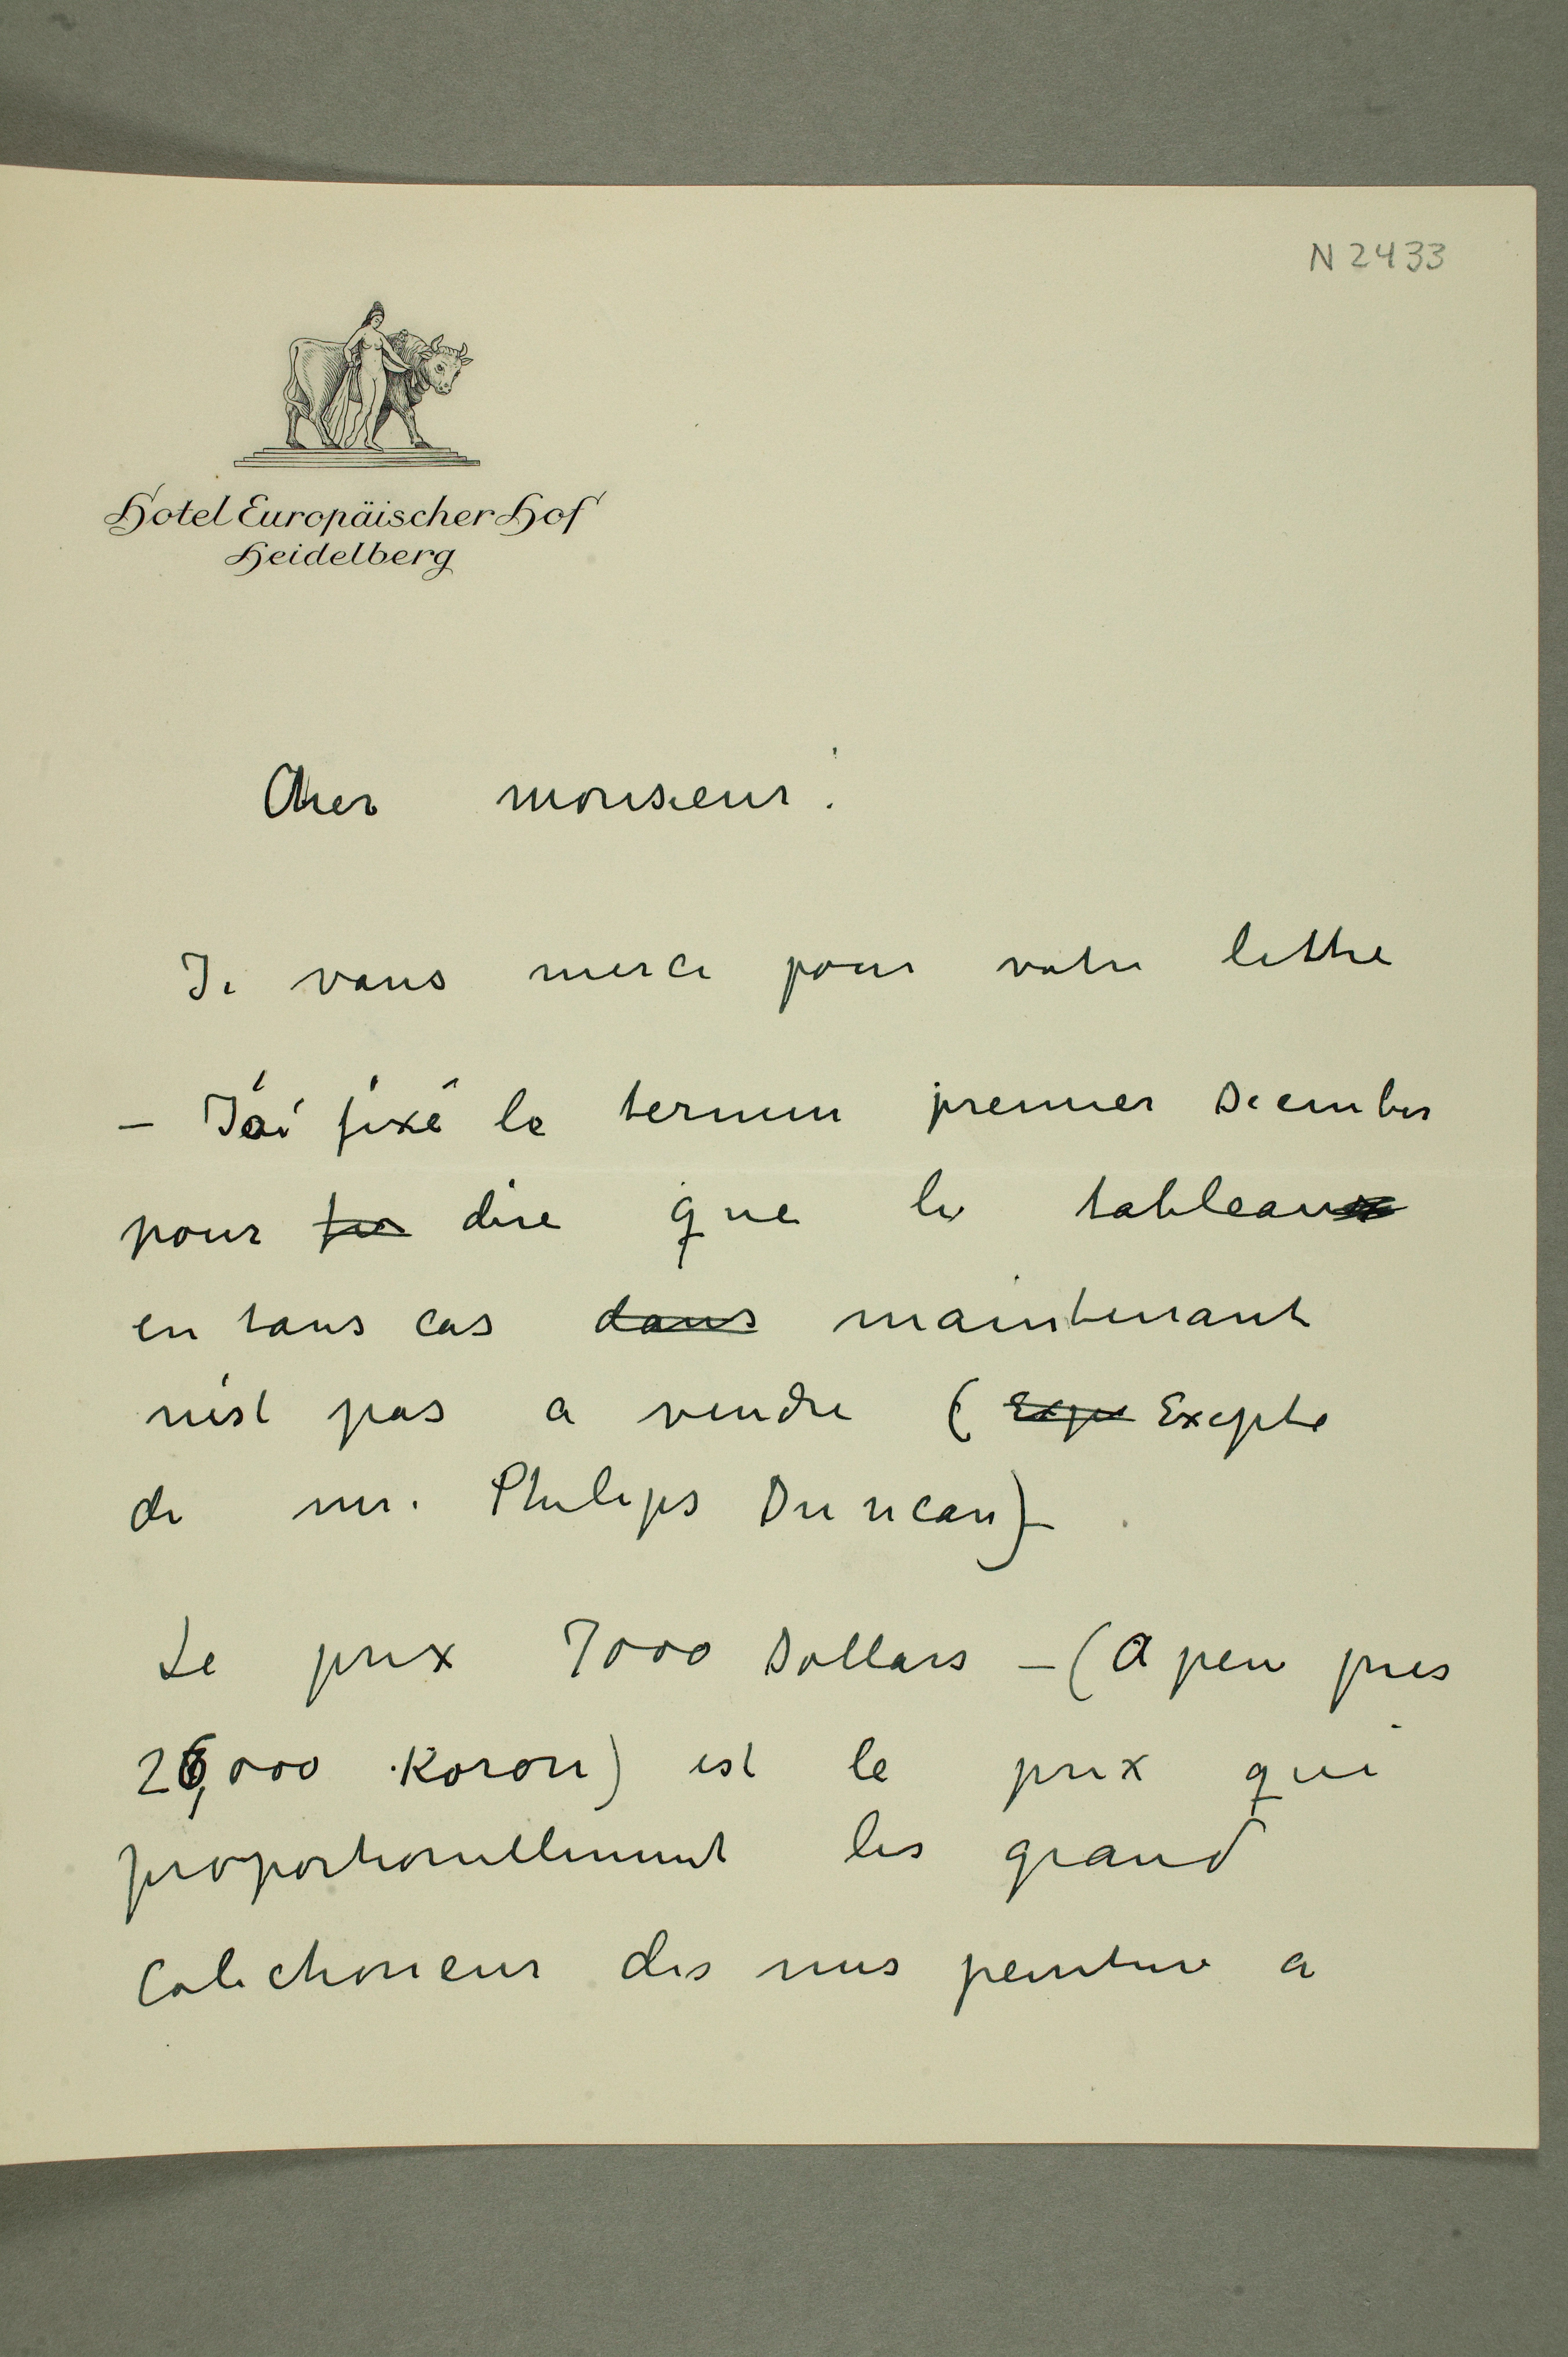 N 2433
Hotel Europäischer Hof
Heidelberg
Cher monsieur!
Je vous merci pour votre lettre
– J'ai fixé le termin premier December
pour dire que le tableau
en tous cas dans maintenant
n'est pas a vendre (Exepte
de mr. Philips Duncan) –
Le prix 7000 Dollars – (A peu pres
26,000 Koron) est le prix qui
proportionellement les grand
Colectioneur des mes peinture a